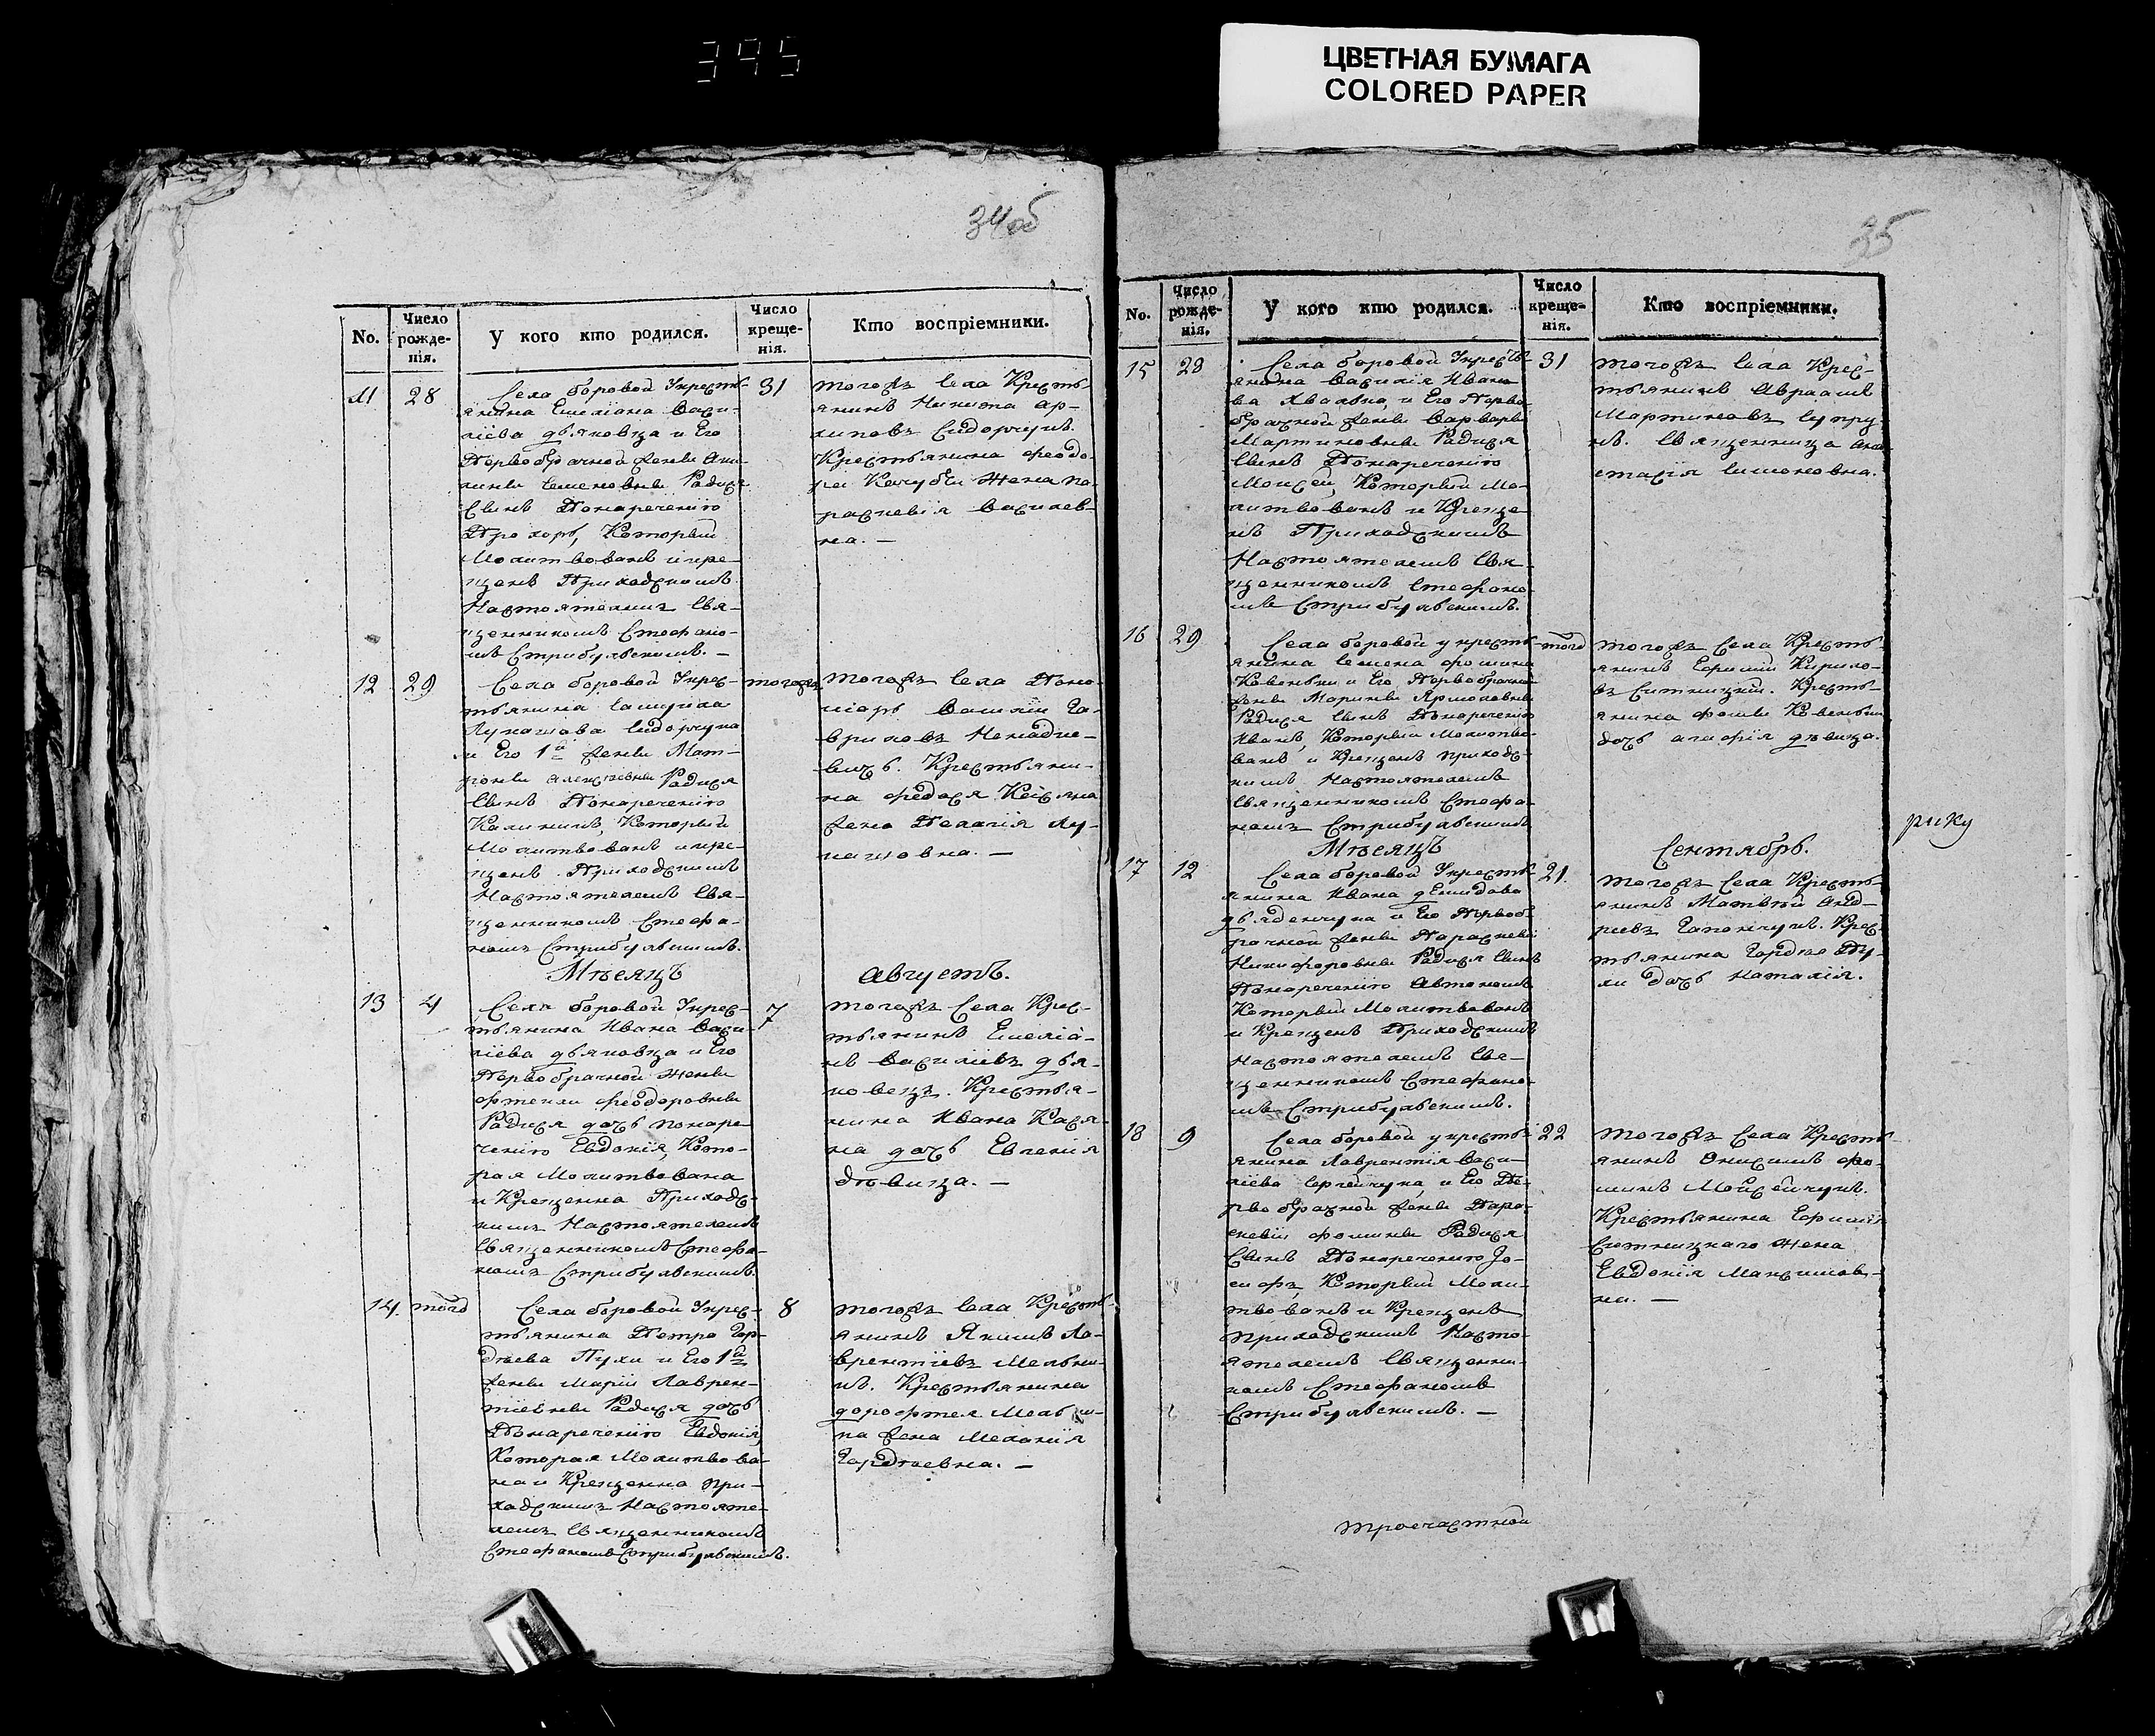 395
ЦВЕТНАЯ БУМАГА
COLORED PAPER
34об
No.
Число рожде-нія.
У кого кто родился.
Число креще-нія.
Кто воспріемники.
11 28
Села боровой Укресть-
янина Емеліана Васи-
ліева дьяковца и Его
Первобрачной жены
Семеновны Родися
Сынъ Понареченію
Прохоръ, Который
Молитвованъ икре-
щенъ Приходскимъ
Настоятелемъ Свя-
щенникомъ Стефано-
мъ Стрибулвскимъ. —
31
тогожъ Села Кресть
янинъ Никита Ар-
хиповъ Сидорчукъ.
Крестьянина феодо-
ра Кочубы жена па-
раскевія Василев-
на. —
12 29
Села боровой Укрес-
тьянина
Лукашова Сидорчука
и Его 1й жены Мат-
роны Алексѣевны Родися
Сынъ Понареченію
Калиникъ, Который
Молитвованъ икре-
щенъ Приходскимъ
Настоятелемъ Свя-
щенникомъ Стефа-
номъ Стрибулвскимъ.
тогожъ
тогожъ Села Поно-
марь Василіи Га-
вриловъ Ненадке-
вичъ. Крестьяни-
на федося Касяна
жена Пелагія Лу-
кашовна. —
Мѣсяцъ Августъ.
13 4
Села боровой Укрес-
тьянина Ивана Васи-
ліева дьяковца и Его
Первобрачной жены
феодоровны
Родися дочь понаре-
ченію Евдокія, Кото-
рая Молитвована
и Крещенна Приходс-
кимъ Настоятелемъ
Священникомъ Стефа-
номъ Стрибулвскимъ.
7
тогожъ Села Крес-
тьянинъ Емеліа-
нъ Василіевъ дья-
ковецъ. Крестья-
нина Ивана Кася-
на дочь Евгенія
дѣвица. —
14. тогo
Села боровой Укрес-
тьянина Петра Гор-
дѣева Пухи и Его 1й
жены Маріи Лаврен-
тіевны Родися дочь
Понареченію Евдокія,
Которая Молитвова-
на и Крещенна При-
ходскимъ Настояте-
лемъ Священникомъ
Стефаномъ Стрибулвскимъ.
8
тогожъ Села Кресть-
янинъ Якимъ Ла-
врентіевъ Мельни-
къ. Крестьянина
дорофтея Мельни-
ка жена Меланія
Гордѣевна. —
35
No.
Число рожде-нія.
У кого кто родился.
Число креще-нія.
Кто воспріемники.
15 28
Села боровой Укресть-
янина Василія Ивано-
ва и Его Перво-
брачной жены Варвары
Мартиновны Родися
Сынъ Понареченію
Моисей, Который Мо-
литвованъ и Креще-
нъ Приходскимъ
Настоятелемъ Свя-
щенникомъ Стефано-
мъ Стрибулвскимъ.
31
тогожъ Села Крес-
тьянинъ Авраамъ
Мартиновъ Супру-
нъ. Священница Ана-
стасія Симоновна.
16 29
Села боровой укресть-
янина Семена фомина
Ковеньки и Его Первобрачной
жены Марины Ярмоловны
Родися Сынъ Понареченію
Иванъ, Который Молитво-
ванъ и Крещенъ Приходс-
кимъ Настоятелемъ
Священникомъ Стефа-
номъ Стрибулвскимъ
тогo
тогожъ Села Кресть-
янинъ Ефимій Кирило-
въ Ситницкій. Кресть-
янина фомы Ковеньки
дочь Агафія дѣвица.
рику
Мѣсяцъ Сентябрь.
17 12
Села боровой Укресть-
янина Ивана демидова
дьяденчука и Его Первоб-
рачной жены Параскевіи
Никифоровны Родися Сынъ
Понареченію Автономъ
Который Молитвованъ
и Крещенъ Приходскимъ
Настоятелемъ Свя-
щенникомъ Стефано-
мъ Стрибулвскимъ.
21.
тогожъ Села Кресть-
янинъ Матвѣй Анд-
реевъ Гапончукъ. Крес-
тьянина Гордѣя Пу-
хи дочь Наталія.
18 9
Села боровой укресть-
янина Лаврентія Васи-
ліева Сергейчука, и Его Пе-
рвобрачной жены Пара-
скевіи фомины Родися
Сынъ Понареченію Іо-
сифъ, Который Моли-
твованъ и Крещенъ
приходскимъ Насто-
ятелемъ Священни-
комъ Стефаномъ
Стрибулвскимъ. —
22
тогожъ Села Кресть-
янинъ Онисимъ фо-
минъ Мойсейчукъ.
Крестьянина Ефимія
Ситницкаго жена
Евдокія Максимов-
на. —
троечастной